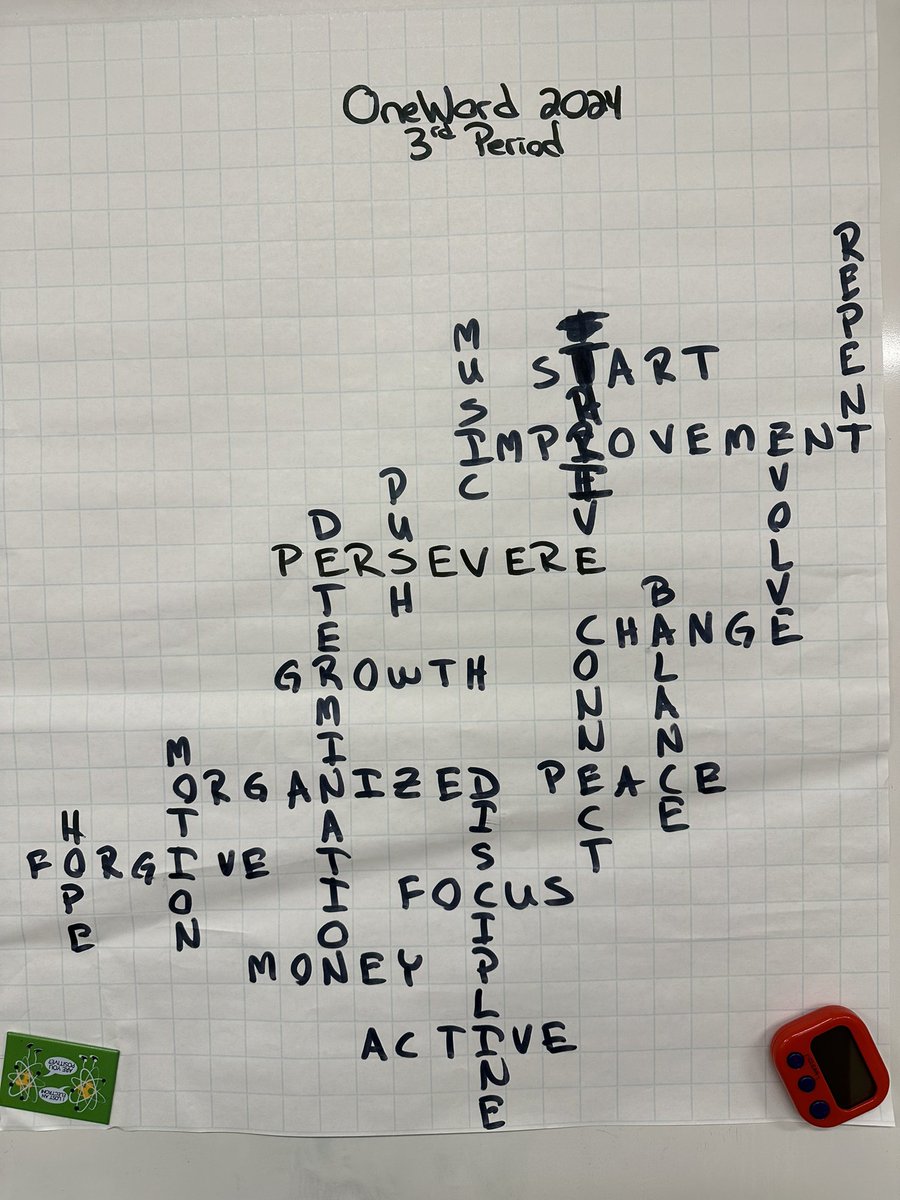 OneWord 2024
3rd Period
REPENT
MUSIC
START
IMPROVEMENT
EVOLVE
PUSH
DETERMINATION
PERSEVERE
BALANCE
CHANGE
CONNECT
GROWTH
MOTION
ORGANIZED
PEACE
DISCIPLINE
HOPE
FORGIVE
FOCUS
MONEY
ACTIVE
ARE YOU
POSITIVE?
I LOST AN
ELECTRON